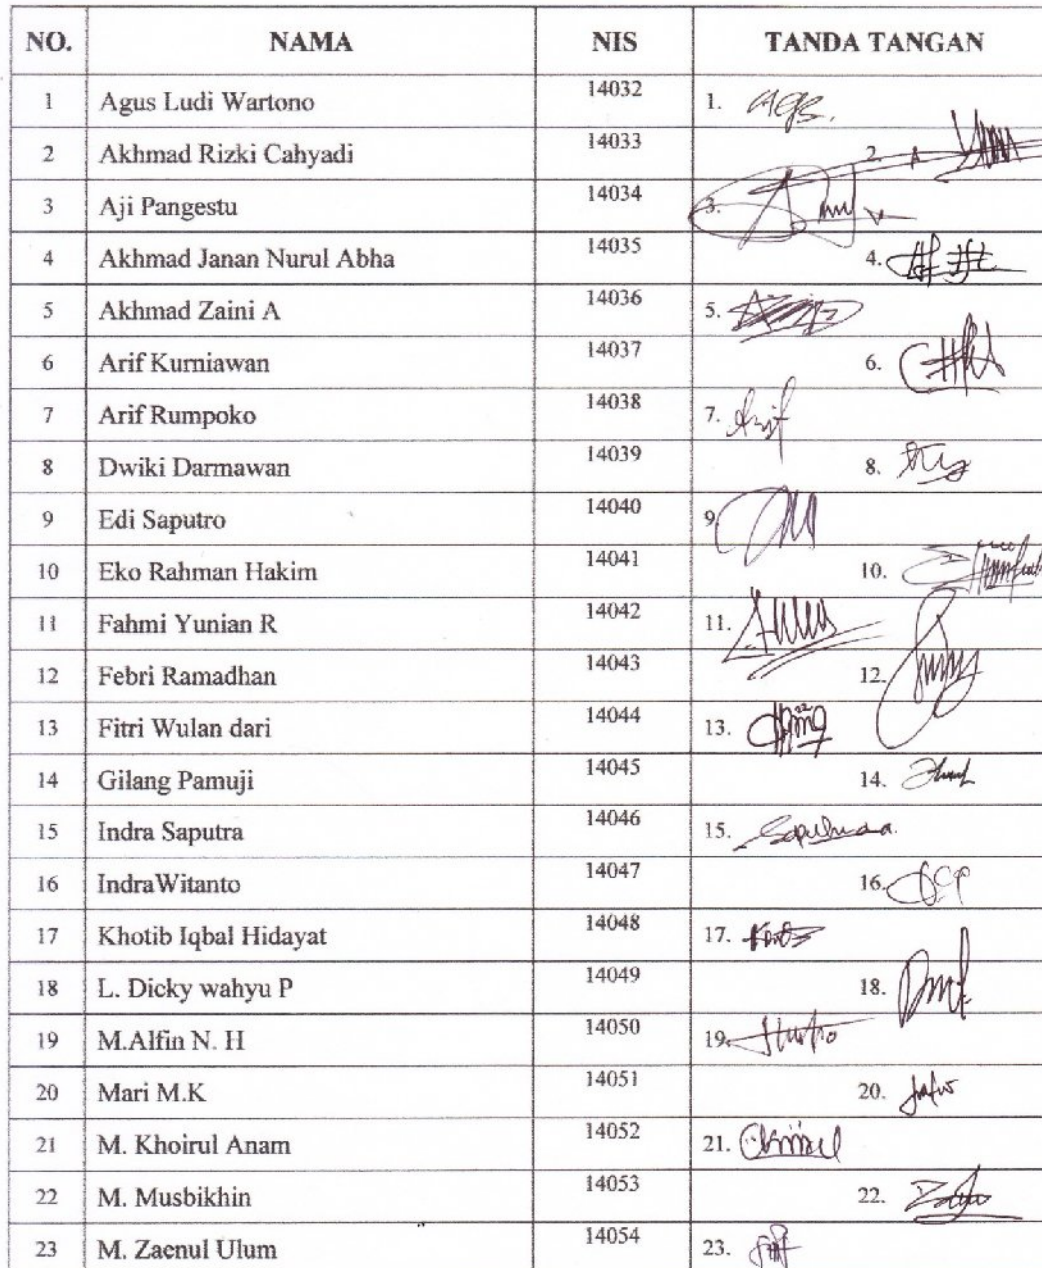 NO. NAMA NIS TANDA TANGAN
1 Agus Ludi Wartono 14032 1.
2 Akhmad Rizki Cahyadi 14033 2.
3 Aji Pangestu 14034 3.
4 Akhmad Janan Nurul Abha 14035 4.
5 Akhmad Zaini A 14036 5.
6 Arif Kurniawan 14037 6.
7 Arif Rumpoko 14038 7.
8 Dwiki Darmawan 14039 8.
9 Edi Saputro 14040 9
10 Eko Rahman Hakim 14041 10.
11 Fahmi Yunian R 14042 11.
12 Febri Ramadhan 14043 12.
13 Fitri Wulan dari 14044 13.
14 Gilang Pamuji 14045 14.
15 Indra Saputra 14046 15.
16 IndraWitanto 14047 16.
17 Khotib Iqbal Hidayat 14048 17.
18 L. Dicky wahyu P 14049 18.
19 M.Alfin N. H 14050 19.
20 Mari M.K 14051 20.
21 M. Khoirul Anam 14052 21.
22 M. Musbikhin 14053 22.
23 M. Zaenul Ulum 14054 23.